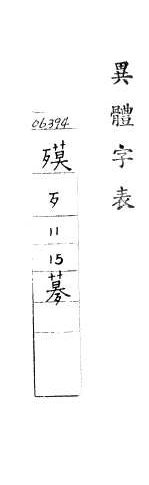 異體字表
06394
㱳
歹
11
15